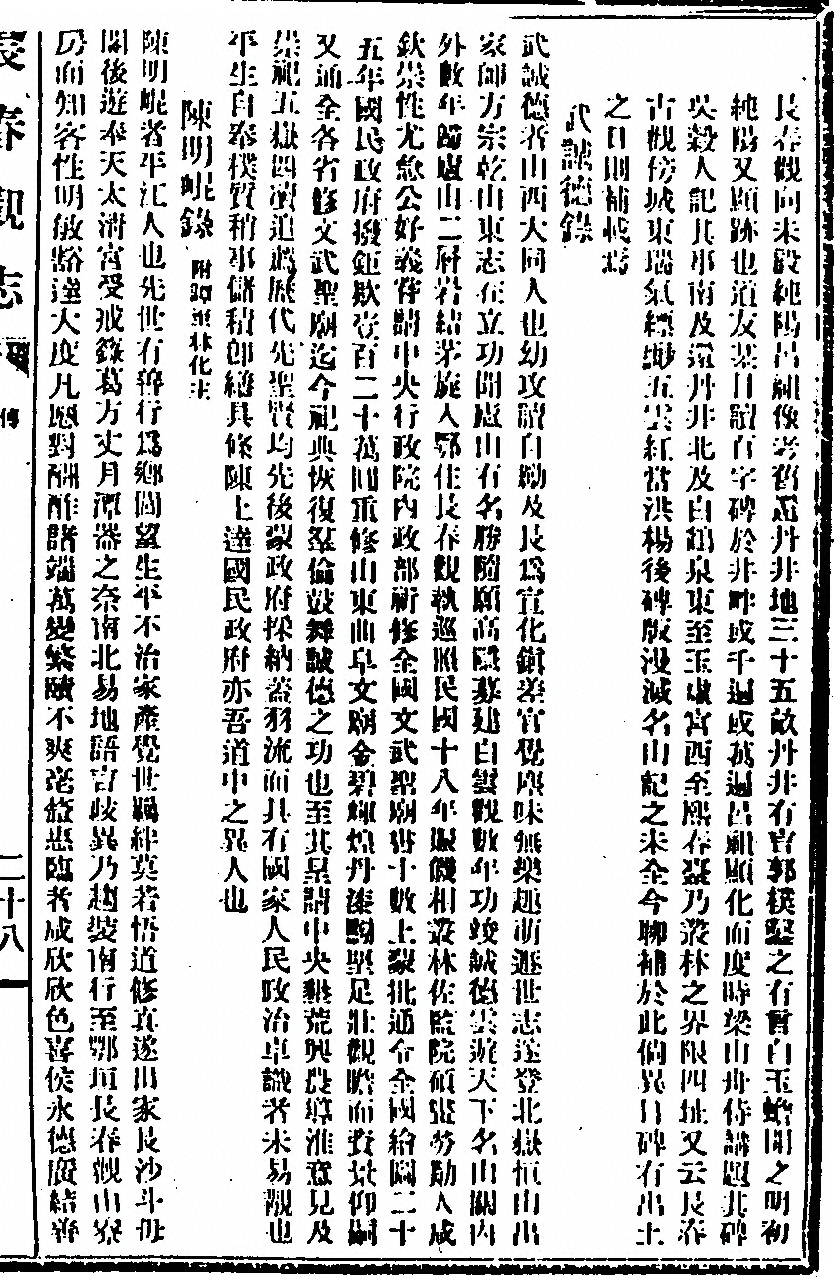 長春觀向來設純陽呂祖像考舊爲丹井地三十五畝丹井有言郭樸鑿之有言白玉蟾開之明初
純陽又顯跡也道友某日讀百字碑於井畔或千遍或萬遍呂祖顯化而度時梁山舟侍講題其碑
吳穀人記其事南及還丹井北及白鶴泉東至玉虛宮西至熙春臺乃叢林之界限四址又云長春
古觀傍城東瑞氣縹緲五雲紅當洪楊後碑版漫滅名山記之未全今聊補於此倘異日碑有出土
之日則補載焉
武誠德錄
武誠德者山西大同人也幼攻讀自勵及長爲宣化鎮差官覺興味無樂趣萌遯世志遂登北嶽恒山出
家師方宗乾山東志在立功聞廬山有名勝隨願高隱募建白雲觀數年功竣誠德雲遊天下名山關内
外數年歸廬山二層岩結茅旋入鄂住長春觀執巡照民國十八年賑饑相叢林佐監院碩畫勞勩人咸
欽崇性尤急公好義奔請中央行政院內政部祈修全國文武聖廟書十數上蒙批通令全國給圖二十
五年國民政府撥鉅欵壹百二十萬圓重修山東曲阜文廟金碧輝煌丹漆黝堊足壯觀瞻而資景仰嗣
又通全各省修文武聖廟迄今祀典恢復羣倫鼓舞誠德之功也至其呈請中央墾荒興農導淮意見及
崇祀五嶽四瀆追薦歷代先聖賢均先後蒙政府採納蓋羽流而具有國家人民政治卓識者未易觀也
平生自奉樸質稍事儲積即繕具條陳上達國民政府亦吾道中之異人也
陳明崐錄 附譚至林化主
陳明崐者平江人也先世有善行爲鄉閭望生平不治家產覺世羈絆莫若悟道修真遂出家長沙斗姆
閣後遊奉天太淸宮受戒錄葛方丈月潭器之奈南北易地語言歧異乃趣裝南行至鄂垣長春觀由寮
房而知客性明敏豁達大度凡應對酬酢諸端萬變繁賾不爽毫釐惠臨者咸欣欣色喜侯永德廣結善
長春觀志 卷 傳 二十八